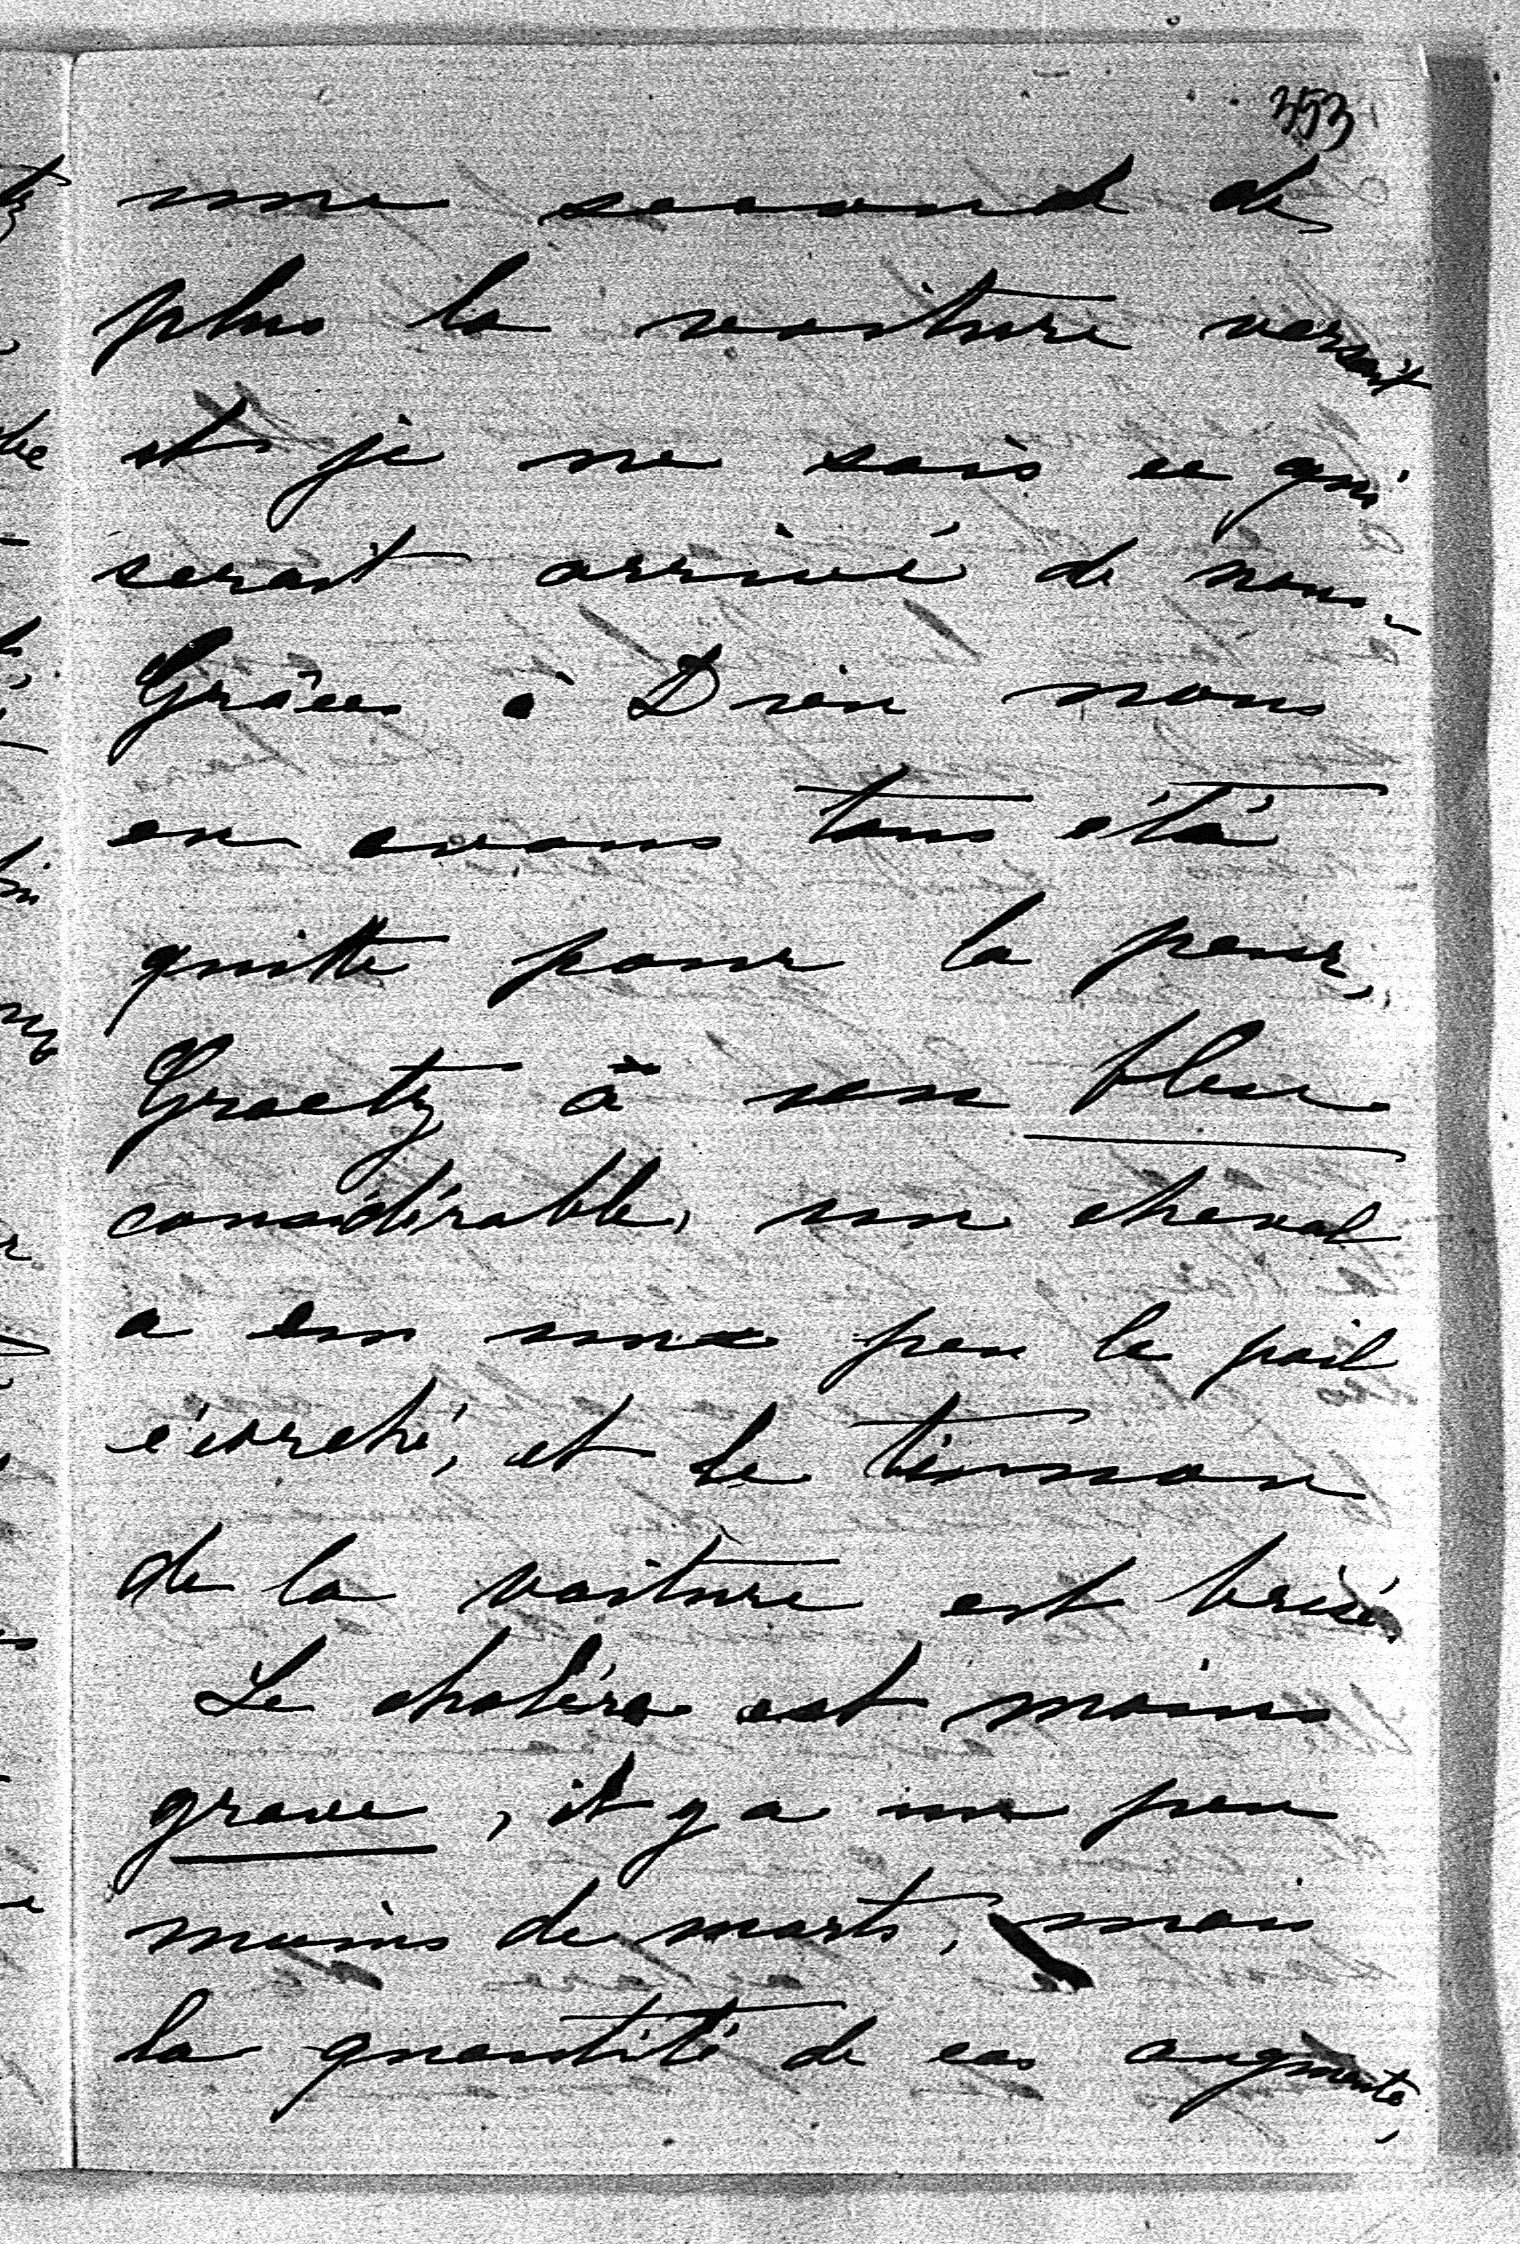 353
une seconde de
plus la voiture versait
et je ne sais ce qui
serait arrivé de nous -
Grâces à Dieu nous
en avons tous été
quitte pour la peur,
Graetz à un bleu
considérable, un cheval
a eu un peu le poil
écorché, et le timon
de la voiture est brisé.
Le choléra est moins
grave, il y a un peu
moins de morts, mais
la quantité de cas augmente,